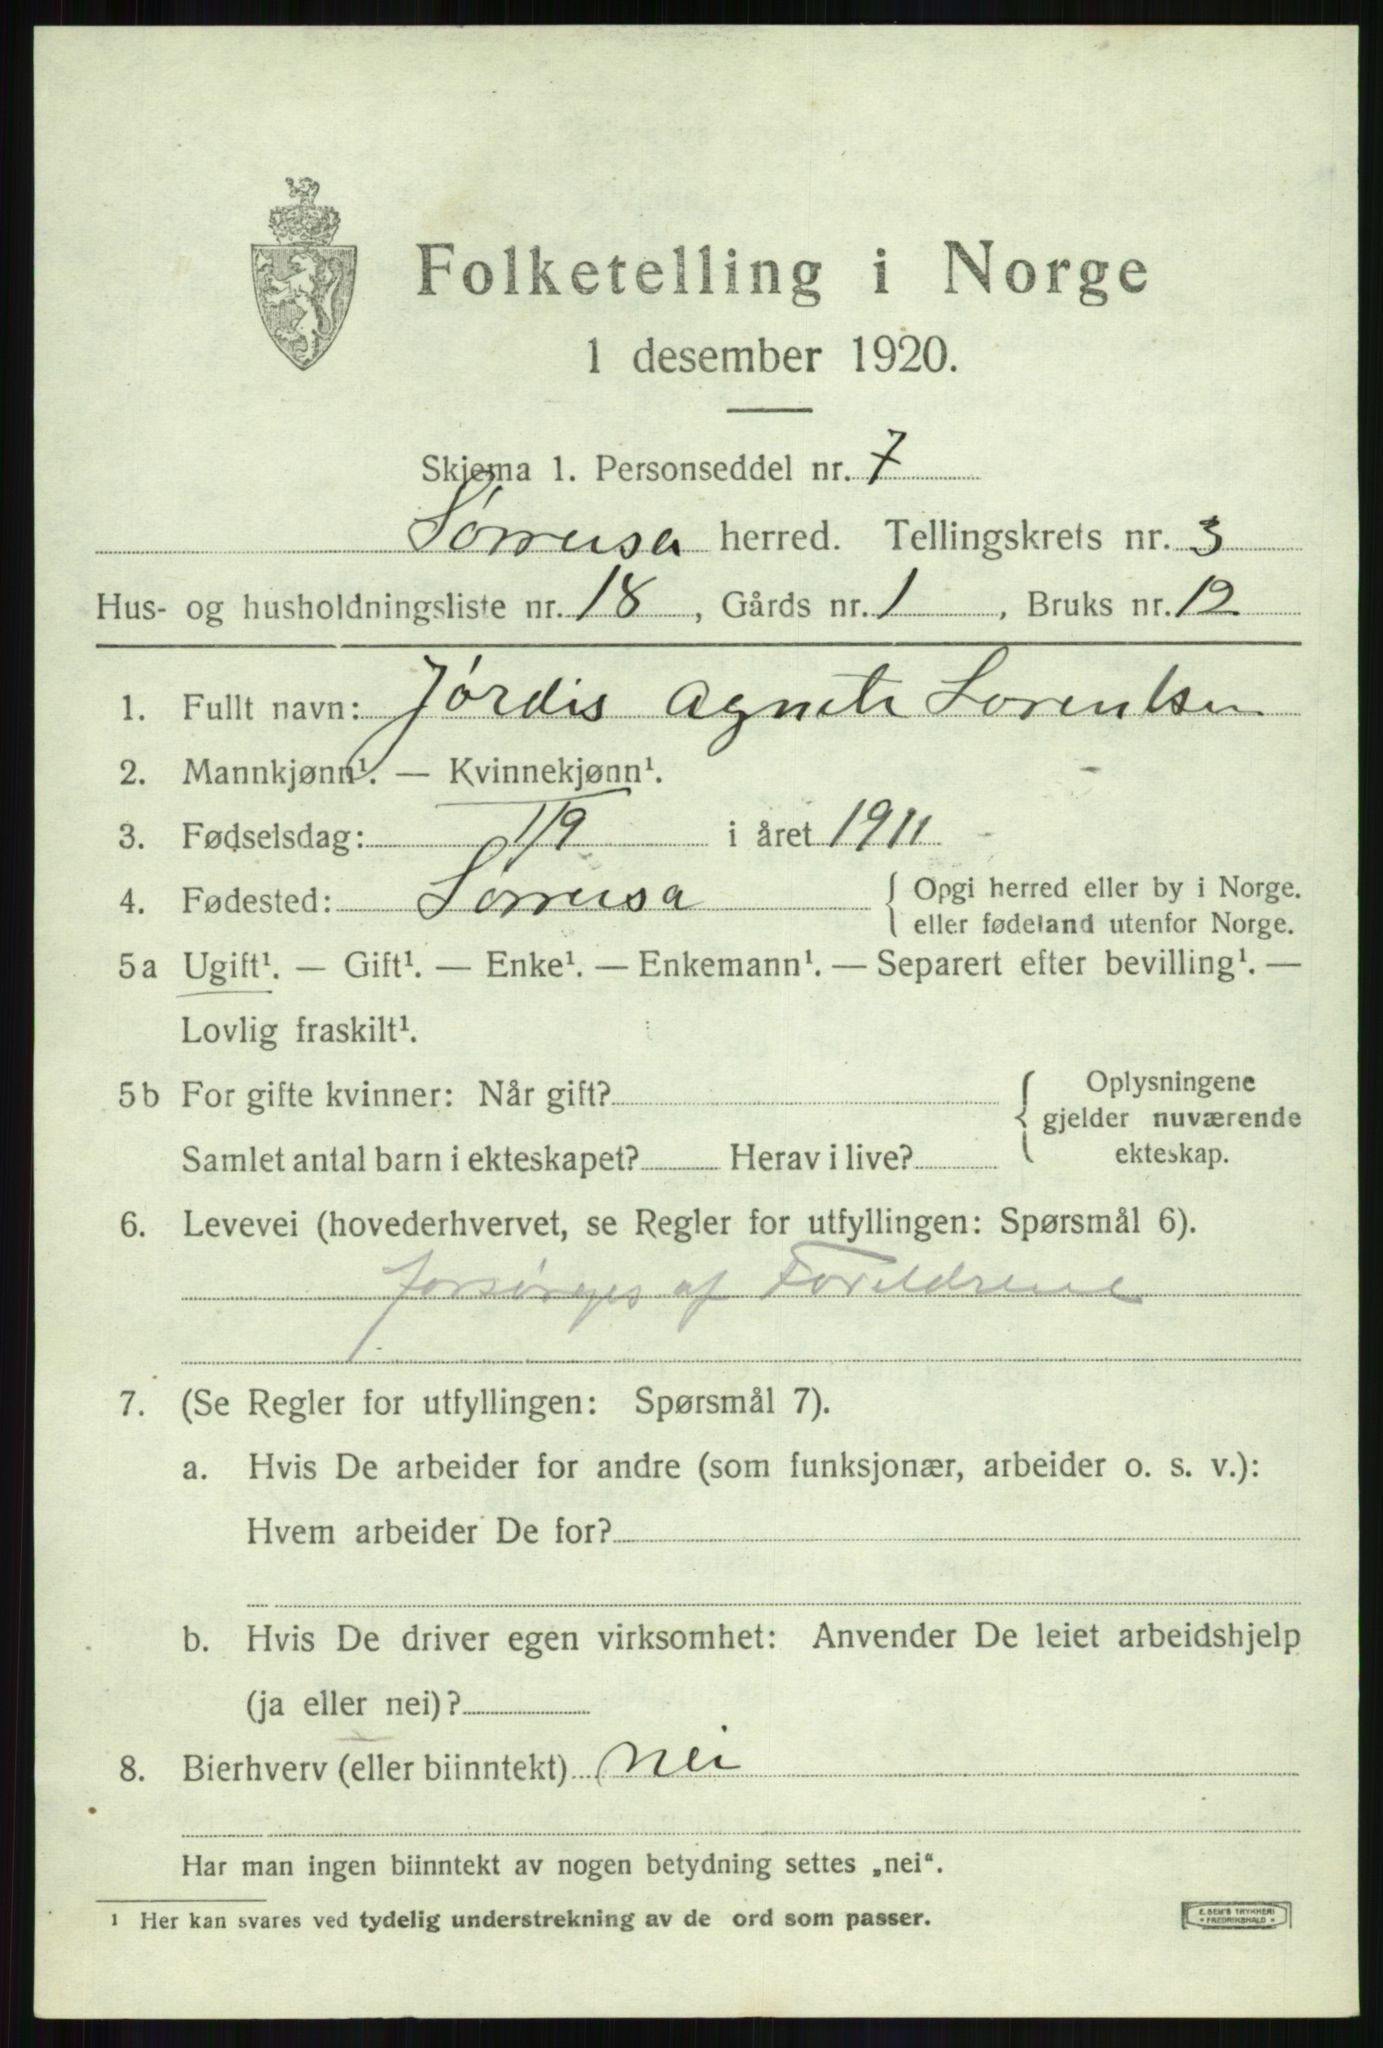 Folketelling i Norge
1 desember 1920.
Skjema 1. Personseddel nr. 7
Sørreisa herred. Tellingskrets nr. 3
Hus- og husholdningsliste nr. 18, Gårds nr. 1, Bruks nr. 12
1. Fullt navn: Jørdis Agnete Lorentsen
2. Mannkjønn¹. — Kvinnekjønn¹.
3. Fødselsdag: 1/9 i året 1911
4. Fødested: Sørreisa { Opgi herred eller by i Norge.
eller fødeland utenfor Norge.
5a Ugift¹. — Gift¹. — Enke¹. — Enkemann¹. — Separert efter bevilling¹. —
Lovlig fraskilt¹.
5b For gifte kvinner: Når gift? { Oplysningene
gjelder nuværende
Samlet antal barn i ekteskapet? Herav i live? ekteskap.
6. Levevei (hovederhvervet, se Regler for utfyllingen: Spørsmål 6).
forsørges af Forældrene
7. (Se Regler for utfyllingen: Spørsmål 7).
a. Hvis De arbeider for andre (som funksjonær, arbeider o. s. v.):
Hvem arbeider De for?
b. Hvis De driver egen virksomhet: Anvender De leiet arbeidshjelp
(ja eller nei)?
8. Bierhverv (eller biinntekt) nei
Har man ingen biinntekt av nogen betydning settes „nei“.
¹ Her kan svares ved tydelig understrekning av de ord som passer.
E. SEM'S TRYKKERI
• FREDRIKSHALD •